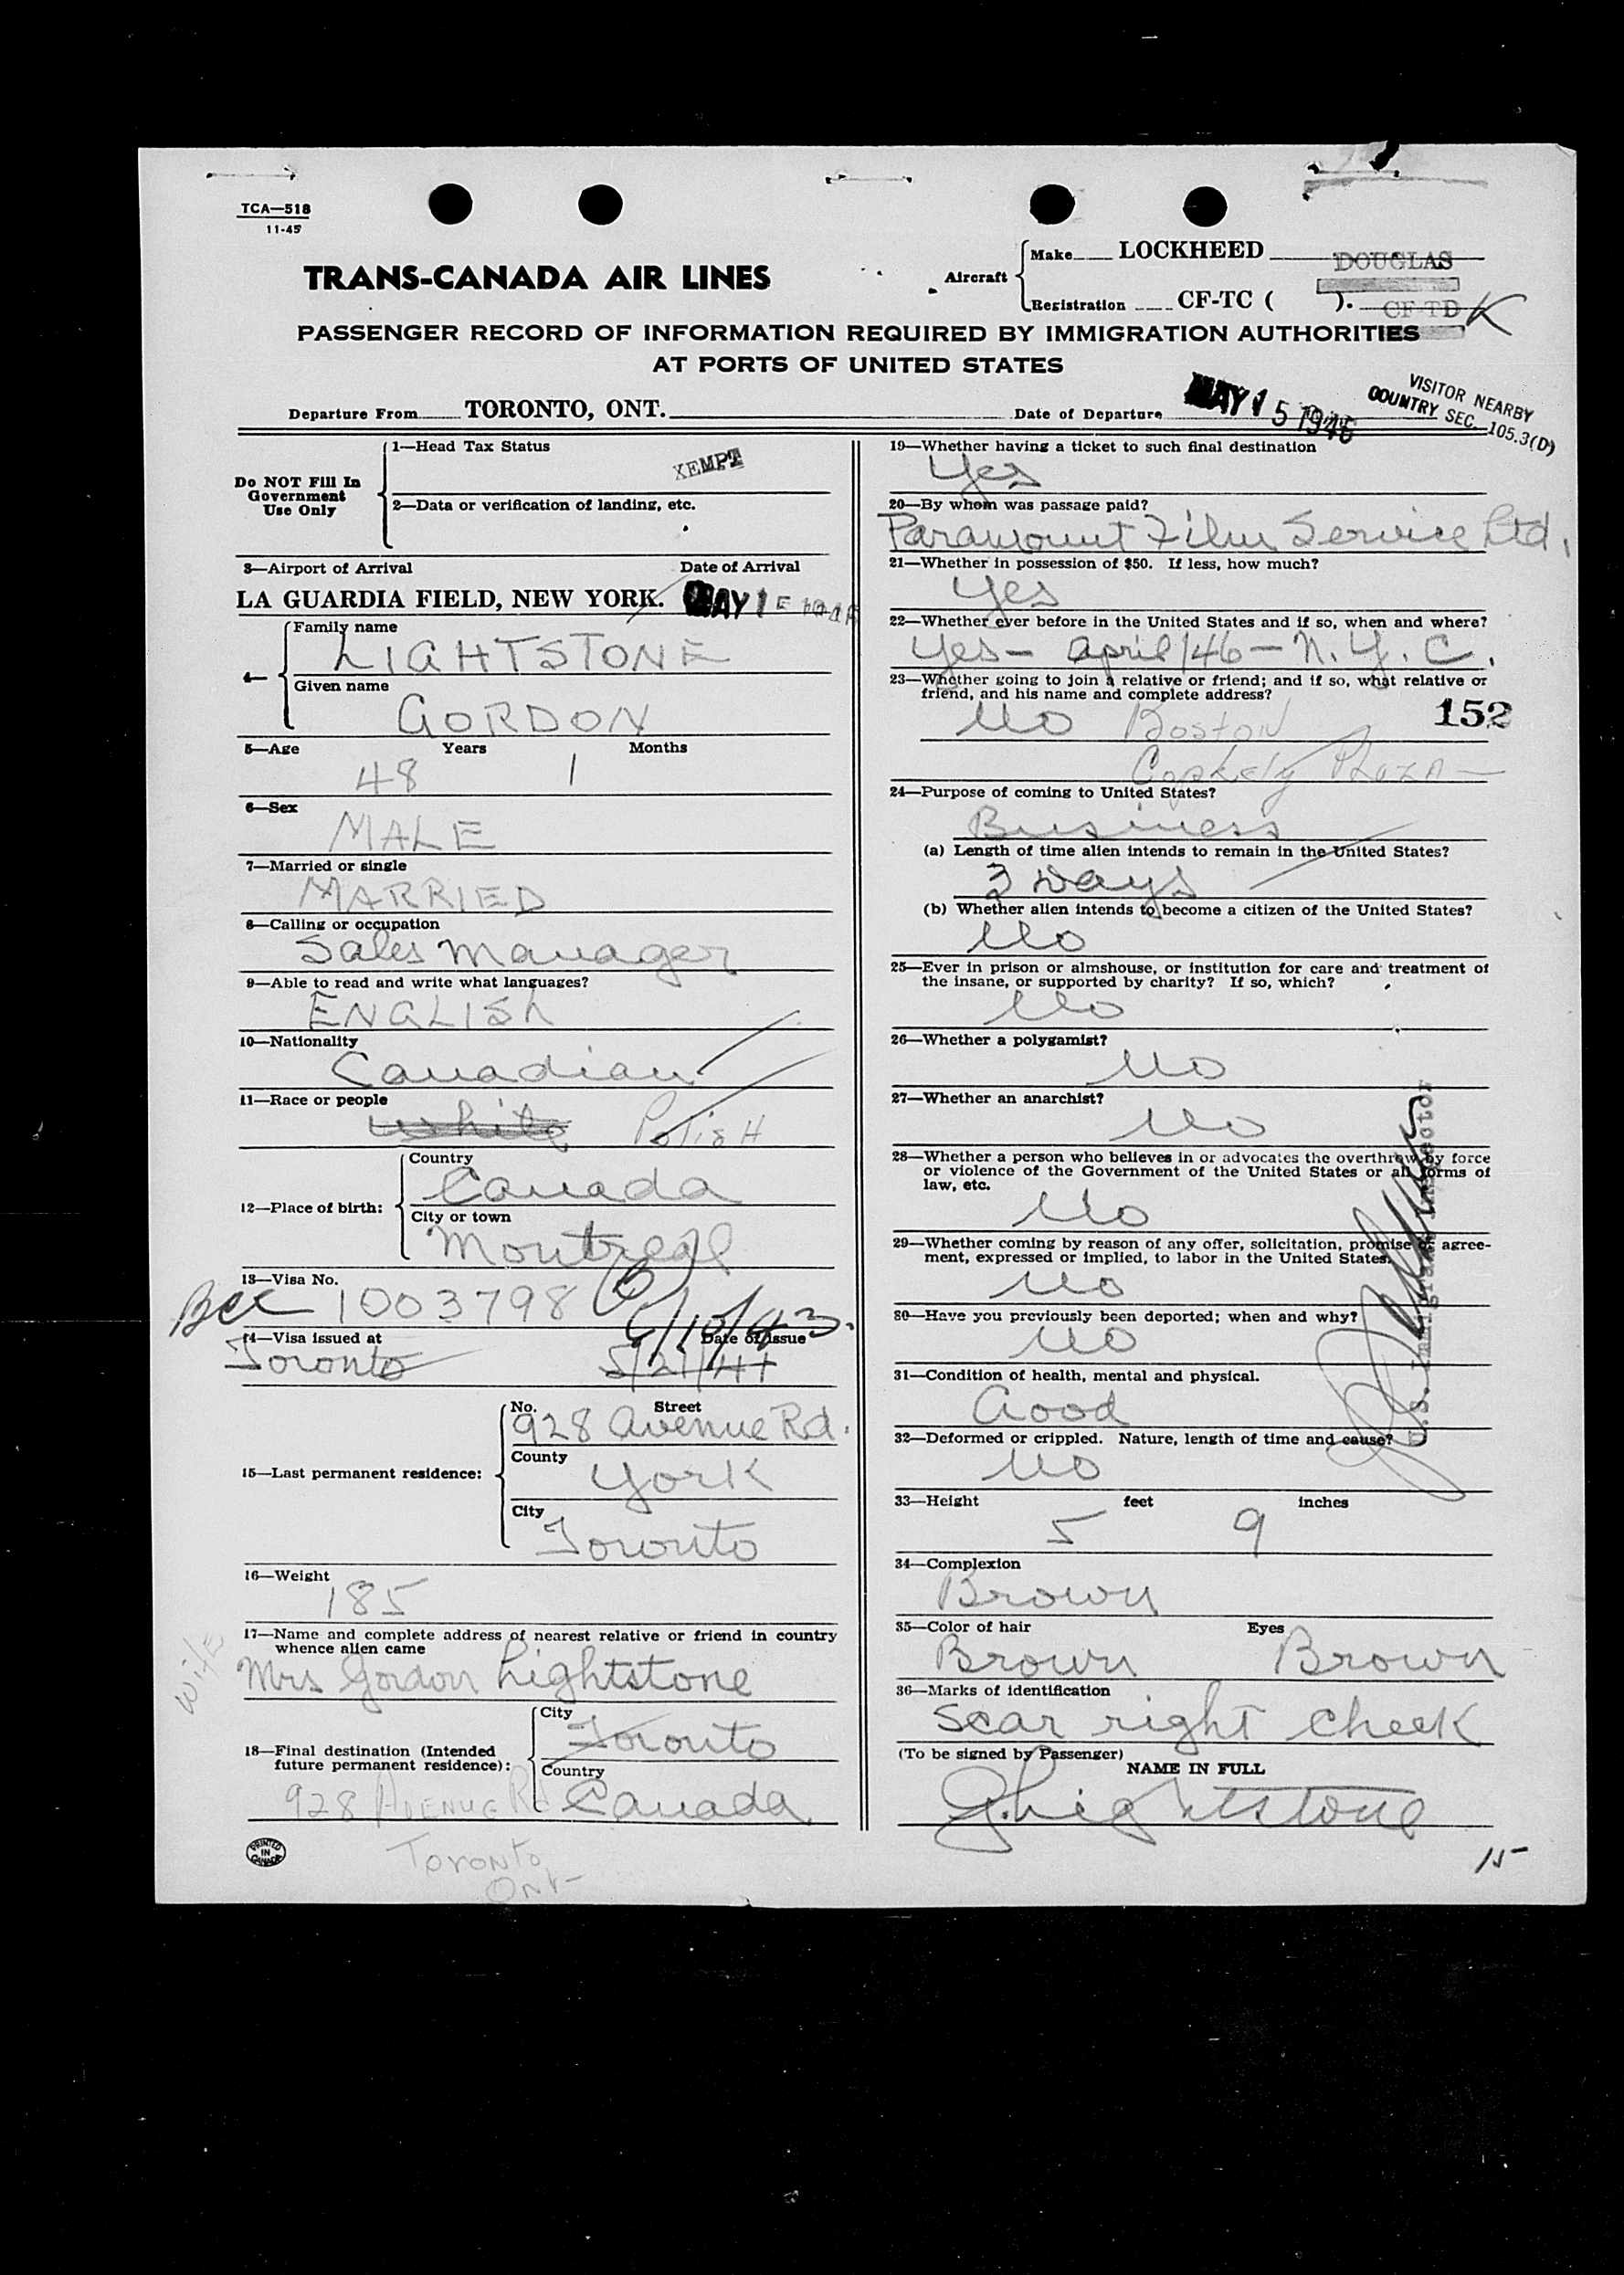 TCA—518
11-45
TRANS-CANADA AIR LINES
Aircraft
Make LOCKHEED DOUGLAS
Registration CF-TC ( ). CF-TD K
PASSENGER RECORD OF INFORMATION REQUIRED BY IMMIGRATION AUTHORITIES
AT PORTS OF UNITED STATES
Departure From TORONTO, ONT. Date of Departure MAY 15 1946
VISITOR NEARBY
COUNTRY SEC. 105.3(D)
Do NOT Fill In
Government
Use Only
1—Head Tax Status
XEMPT
2—Data or verification of landing, etc.
3—Airport of Arrival Date of Arrival
LA GUARDIA FIELD, NEW YORK. MAY 1
4—
Family name
LIGHTSTONE
Given name
GORDON
5—Age Years Months
48 1
6—Sex
MALE
7—Married or single
MARRIED
8—Calling or occupation
Sales Manager
9—Able to read and write what languages?
ENGLISH
10—Nationality
Canadian
11—Race or people
White Polish
12—Place of birth:
Country
Canada
City or town
Montreal
13—Visa No.
BCC 1003798 (B)
9/10/43.
14—Visa issued at Date of Issue
Toronto 5/21/41
15—Last permanent residence:
No. Street
928 Avenue Rd.
County
York
City
Toronto
16—Weight
185
17—Name and complete address of nearest relative or friend in country
whence alien came
Wife
Mrs Gordon Lightstone
18—Final destination (Intended
future permanent residence):
City
Toronto
Country
Canada
928 Avenue Rd
Toronto
Ont-
PRINTED
IN
CANADA
19—Whether having a ticket to such final destination
Yes
20—By whom was passage paid?
Paramount Film Service Ltd.
21—Whether in possession of $50. If less, how much?
Yes
22—Whether ever before in the United States and if so, when and where?
Yes — April/46 — N.Y.C.
23—Whether going to join a relative or friend; and if so, what relative or
friend, and his name and complete address?
152
No Boston
Copley Plaza —
24—Purpose of coming to United States?
Business
(a) Length of time alien intends to remain in the United States?
3 Days
(b) Whether alien intends to become a citizen of the United States?
No
25—Ever in prison or almshouse, or institution for care and treatment of
the insane, or supported by charity? If so, which?
No
26—Whether a polygamist?
No
27—Whether an anarchist?
No
28—Whether a person who believes in or advocates the overthrow by force
or violence of the Government of the United States or all forms of
law, etc.
No
29—Whether coming by reason of any offer, solicitation, promise or agree-
ment, expressed or implied, to labor in the United States.
No
30—Have you previously been deported; when and why?
No
31—Condition of health, mental and physical.
Good
32—Deformed or crippled. Nature, length of time and cause?
No
U.S. Immigrant Inspector
33—Height feet inches
5 9
34—Complexion
Brown
35—Color of hair Eyes
Brown Brown
36—Marks of identification
Scar right cheek
(To be signed by Passenger)
NAME IN FULL
G. Lightstone
15